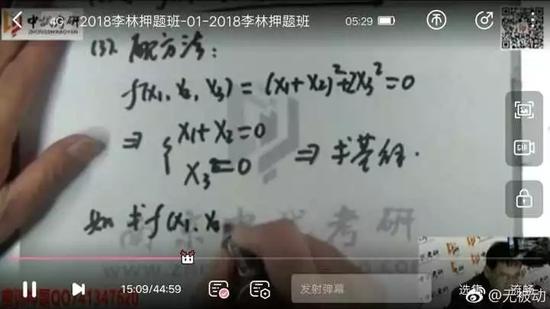 4G 2018李林押题班-01-2018李林押题班 05:29
(3) 配方法:
f(x₁, x₂, x₃) = (x₁+x₂)²+2x₃²=0
⇒ { x₁+x₂=0
x₃=0 ⇒ 求基础解.
如 求f(x₁, x₂
考研
GIF
15:09/44:59
发射弹幕
选集
流畅
@无被动